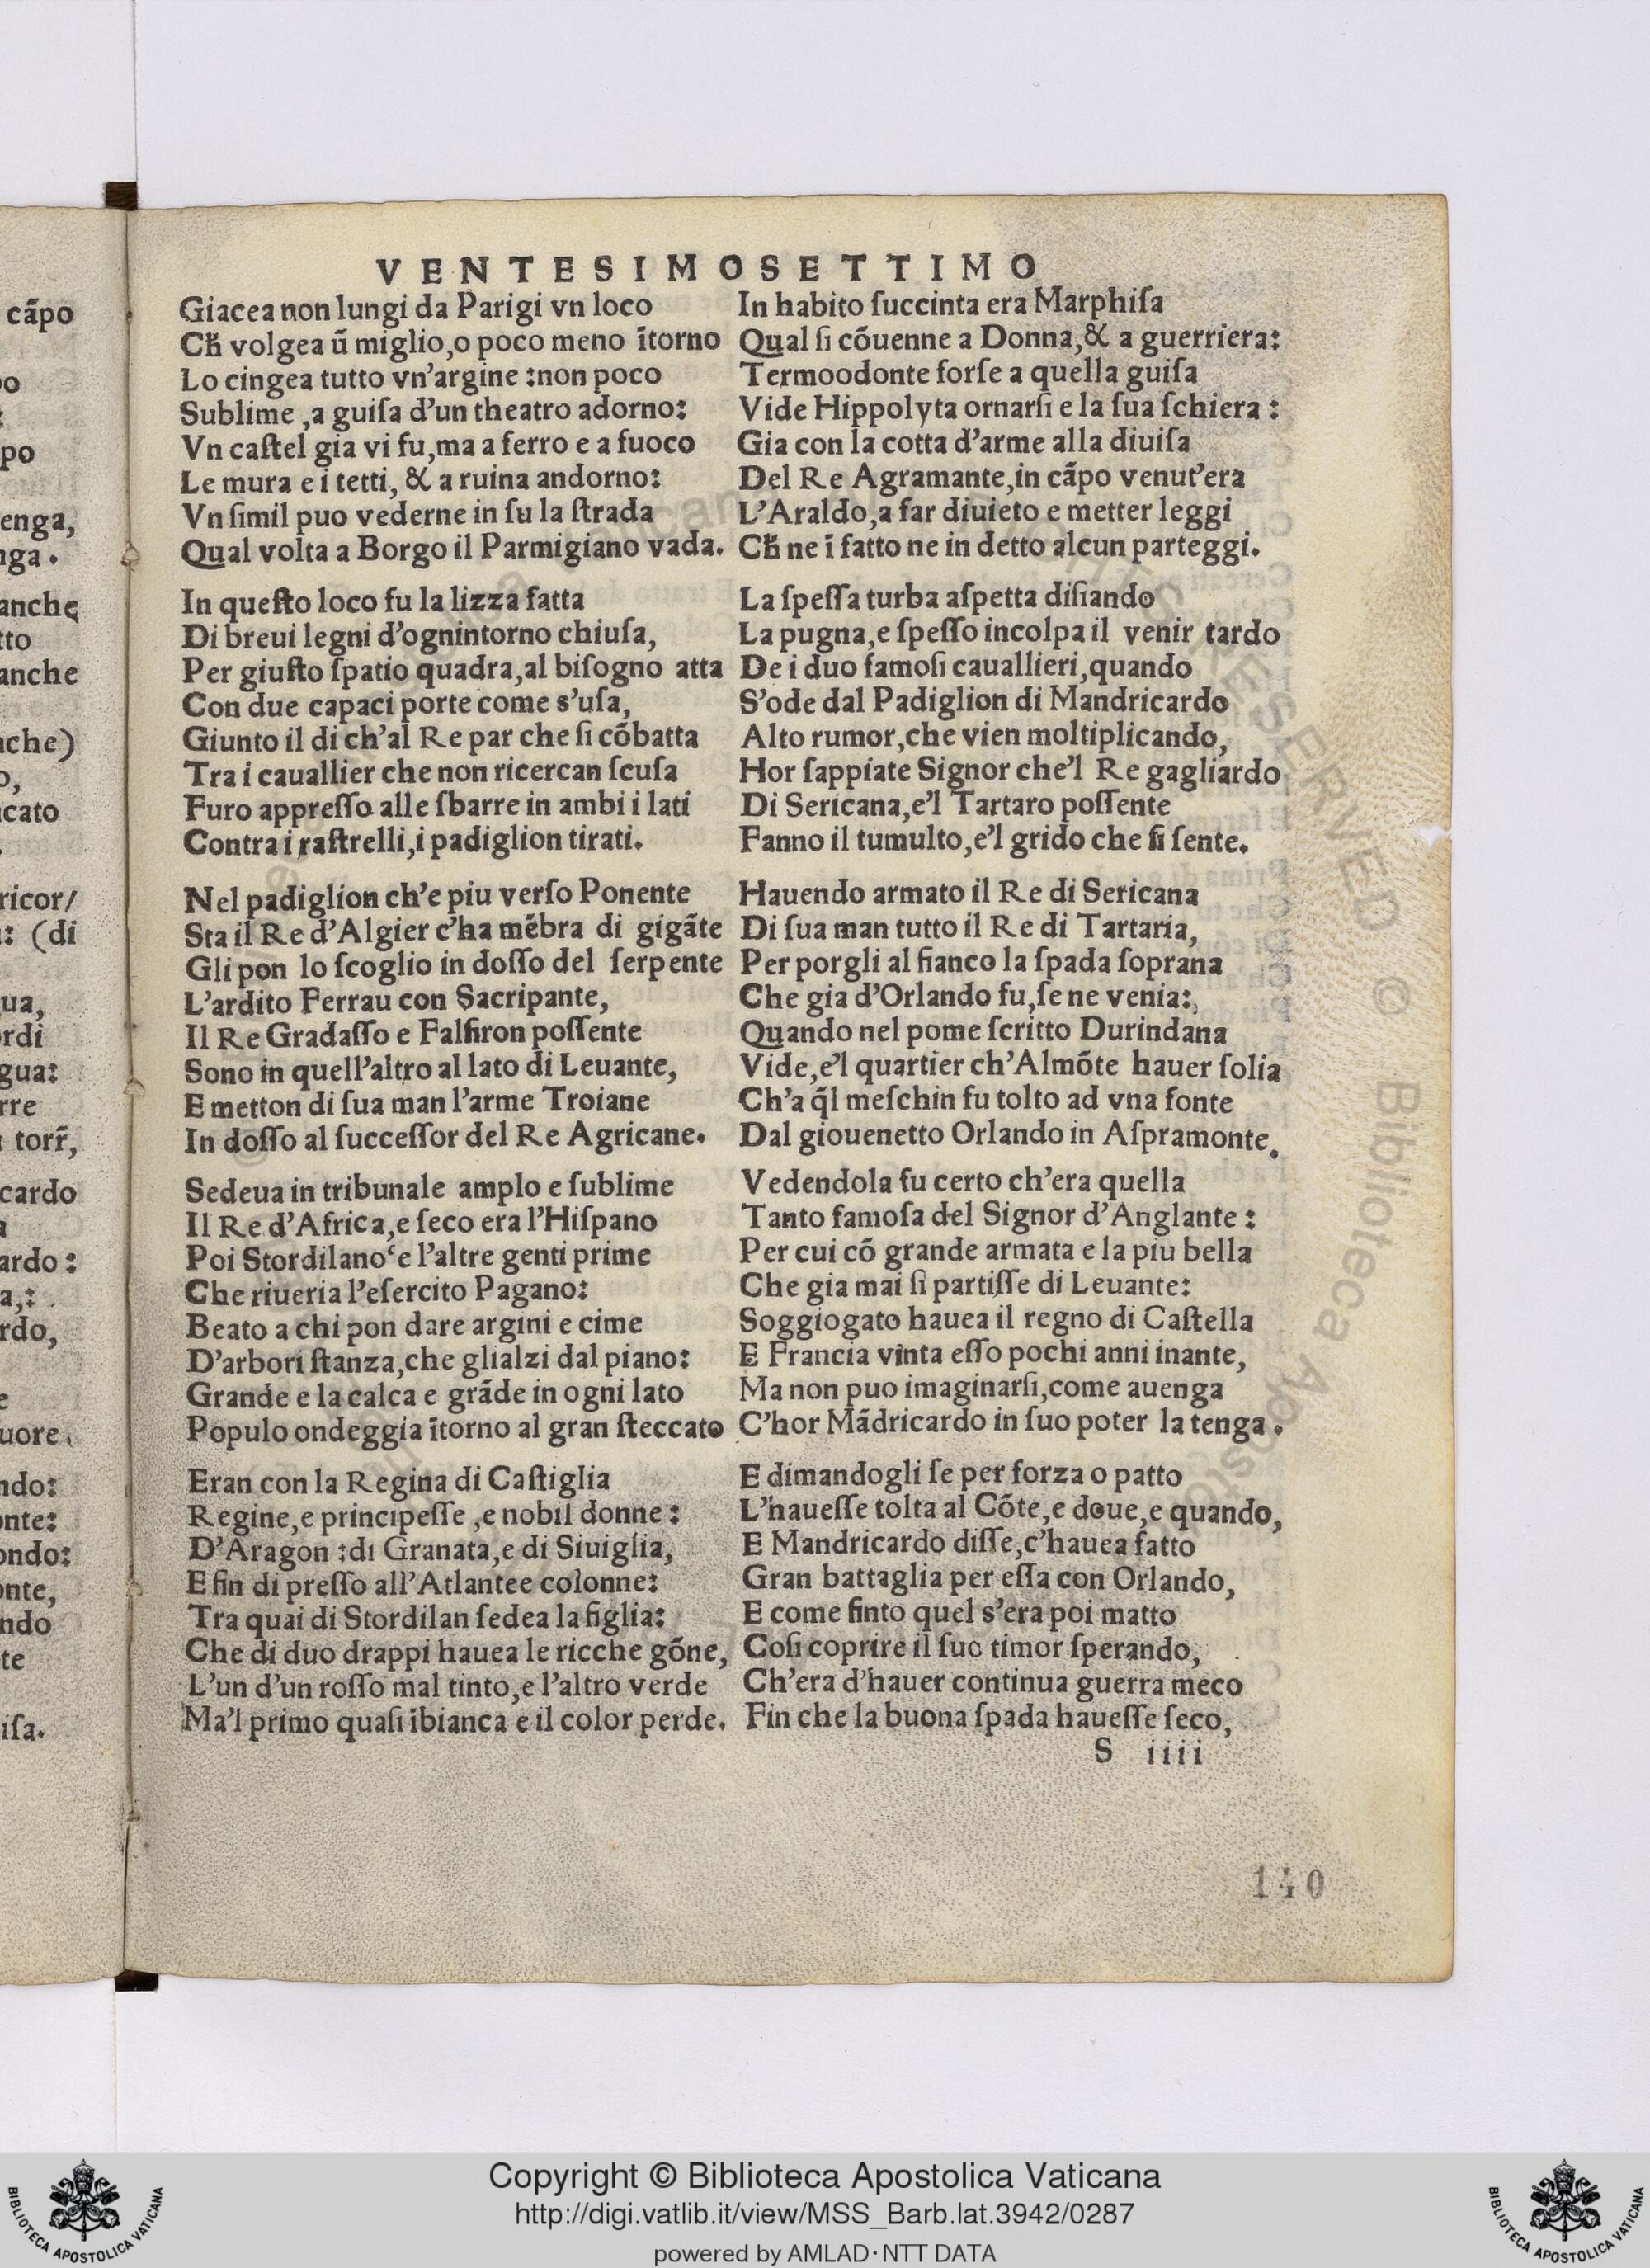 VENTESIMOSETTIMO
Giacea non lungi da Parigi vn loco
Cħ volgea ũ miglio,o poco meno ĩtorno
Lo cingea tutto vn'argine :non poco
Sublime ,a guiſa d'un theatro adorno:
Vn caſtel gia vi fu,ma a ferro e a fuoco
Le mura e i tetti, & a ruina andorno:
Vn ſimil puo vederne in ſu la ſtrada
Qual volta a Borgo il Parmigiano vada.
In queſto loco fu la lizza fatta
Di breui legni d'ognintorno chiuſa,
Per giuſto ſpatio quadra,al biſogno atta
Con due capaci porte come s'uſa,
Giunto il di ch'al Re par che ſi cõbatta
Tra i cauallier che non ricercan ſcuſa
Furo appreſſo alle ſbarre in ambi i lati
Contra i raſtrelli,i padiglion tirati.
Nel padiglion ch'e piu verſo Ponente
Sta il Re d'Algier c'ha mẽbra di gigãte
Gli pon lo ſcoglio in doſſo del ſerpente
L'ardito Ferrau con Sacripante,
Il Re Gradaſſo e Falſiron poſſente
Sono in quell'altro al lato di Leuante,
E metton di ſua man l'arme Troiane
In doſſo al ſucceſſor del Re Agricane.
Sedeua in tribunale amplo e ſublime
Il Re d'Africa,e ſeco era l'Hiſpano
Poi Stordilano‘e l'altre genti prime
Che riueria l'eſercito Pagano:
Beato a chi pon dare argini e cime
D'arbori ſtanza,che glialzi dal piano:
Grande e la calca e grãde in ogni lato
Populo ondeggia ĩtorno al gran ſteccato
Eran con la Regina di Caſtiglia
Regine,e principeſſe ,e nobil donne:
D'Aragon :di Granata,e di Siuiglia,
E fin di preſſo all'Atlantee colonne:
Tra quai di Stordilan ſedea la figlia:
Che di duo drappi hauea le ricche gõne,
L'un d'un roſſo mal tinto,e l'altro verde
Ma'l primo quaſi ĩbianca e il color perde.
In habito ſuccinta era Marphiſa
Qual ſi cõuenne a Donna,& a guerriera:
Termoodonte forſe a quella guiſa
Vide Hippolyta ornarſi e la ſua ſchiera :
Gia con la cotta d'arme alla diuiſa
Del Re Agramante,in cãpo venut'era
L'Araldo,a far diuieto e metter leggi
Cħ ne ĩ fatto ne in detto alcun parteggi.
La ſpeſſa turba aſpetta diſiando
La pugna,e ſpeſſo incolpa il venir tardo
De i duo famoſi cauallieri,quando
S'ode dal Padiglion di Mandricardo
Alto rumor,che vien moltiplicando,
Hor ſappiate Signor che'l Re gagliardo
Di Sericana,e'l Tartaro poſſente
Fanno il tumulto,e'l grido che ſi ſente.
Hauendo armato il Re di Sericana
Di ſua man tutto il Re di Tartaria,
Per porgli al fianco la ſpada ſoprana
Che gia d'Orlando fu,ſe ne venia:
Quando nel pome ſcritto Durindana
Vide,e'l quartier ch'Almõte hauer ſolia
Ch'a q̃l meſchin fu tolto ad vna fonte
Dal giouenetto Orlando in Aſpramonte.
Vedendola fu certo ch'era quella
Tanto famoſa del Signor d'Anglante :
Per cui cõ grande armata e la piu bella
Che gia mai ſi partiſſe di Leuante:
Soggiogato hauea il regno di Caſtella
E Francia vinta eſſo pochi anni inante,
Ma non puo imaginarſi,come auenga
C'hor Mãdricardo in ſuo poter la tenga .
E dimandogli ſe per forza o patto
L'haueſſe tolta al Cõte,e doue,e quando,
E Mandricardo diſſe,c'hauea fatto
Gran battaglia per eſſa con Orlando,
E come finto quel s'era poi matto
Coſi coprire il ſuo timor ſperando,
Ch'era d'hauer continua guerra meco
Fin che la buona ſpada haueſſe ſeco,
S iiii
140
Copyright © Biblioteca Apostolica Vaticana
http://digi.vatlib.it/view/MSS_Barb.lat.3942/0287
powered by AMLAD·NTT DATA
BIBLIOTECA APOSTOLICA VATICANA
BIBLIOTECA APOSTOLICA VATICANA